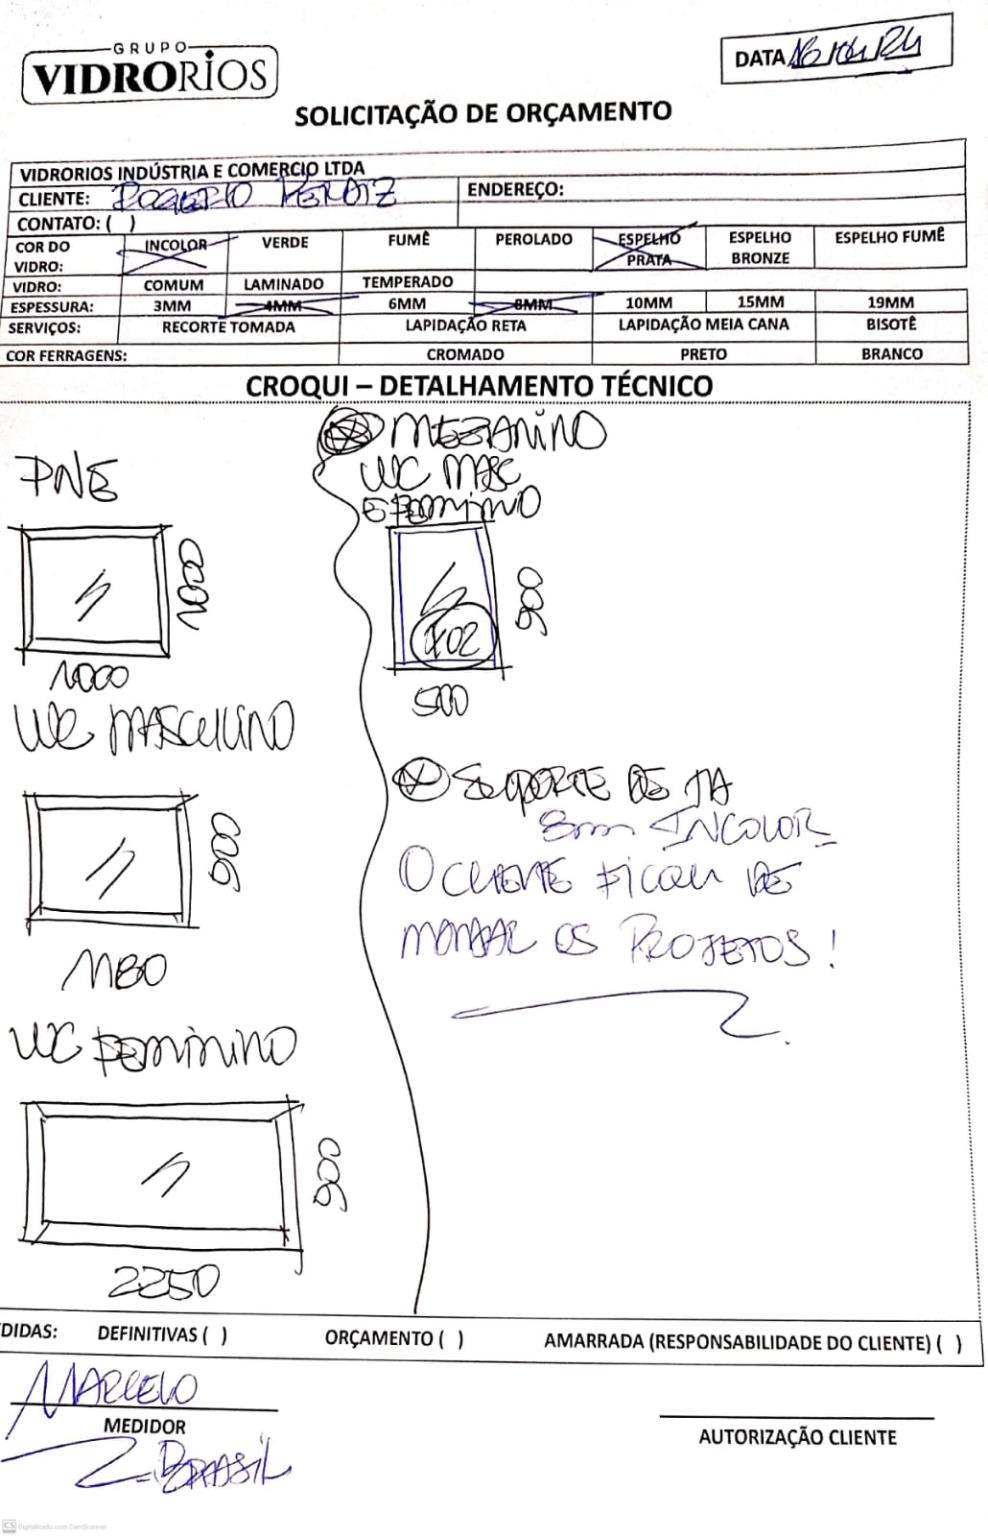 GRUPO
VIDRORIOS
DATA 16/04/24
SOLICITAÇÃO DE ORÇAMENTO
VIDRORIOS INDÚSTRIA E COMERCIO LTDA
CLIENTE: ROGERIO
ENDEREÇO:
CONTATO: ( )
COR DO VIDRO: INCOLOR VERDE FUMÊ PEROLADO ESPELHO PRATA ESPELHO BRONZE ESPELHO FUMÊ
VIDRO: COMUM LAMINADO TEMPERADO
ESPESSURA: 3MM 4MM 6MM 8MM 10MM 15MM 19MM
SERVIÇOS: RECORTE TOMADA LAPIDAÇÃO RETA LAPIDAÇÃO MEIA CANA BISOTÊ
COR FERRAGENS: CROMADO PRETO BRANCO
CROQUI – DETALHAMENTO TÉCNICO
PNE
1000
1000
WC MASCULINO
900
1180
WC FEMININO
900
2250
MEZANINO
WC MASC
E FEMININO
900
X02
500
SUPORTE DE TA
8mm INCOLOR
O CLIENTE FICOU DE
MANDAR OS PROJETOS!
DIDAS: DEFINITIVAS ( ) ORÇAMENTO ( ) AMARRADA (RESPONSABILIDADE DO CLIENTE) ( )
MARCELO
MEDIDOR
BRASIL
AUTORIZAÇÃO CLIENTE
CS Digitalizado com CamScanner